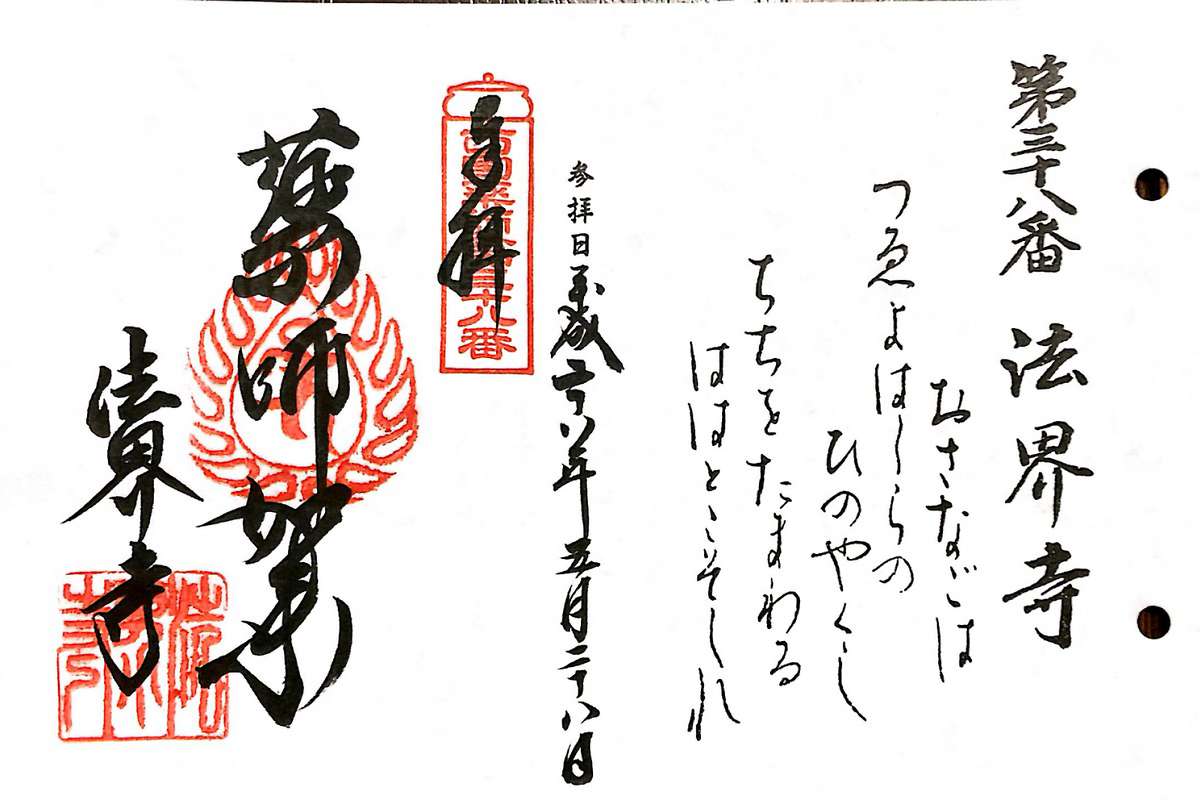 第三十八番 法界寺
おさなごは
つゑよはしらの
ひのやくし
ちちをたまわる
ははとこそしれ
参拝日平成二十八年五月二十八日
奉拝
西国薬師第三十八番
薬師如来
法界寺